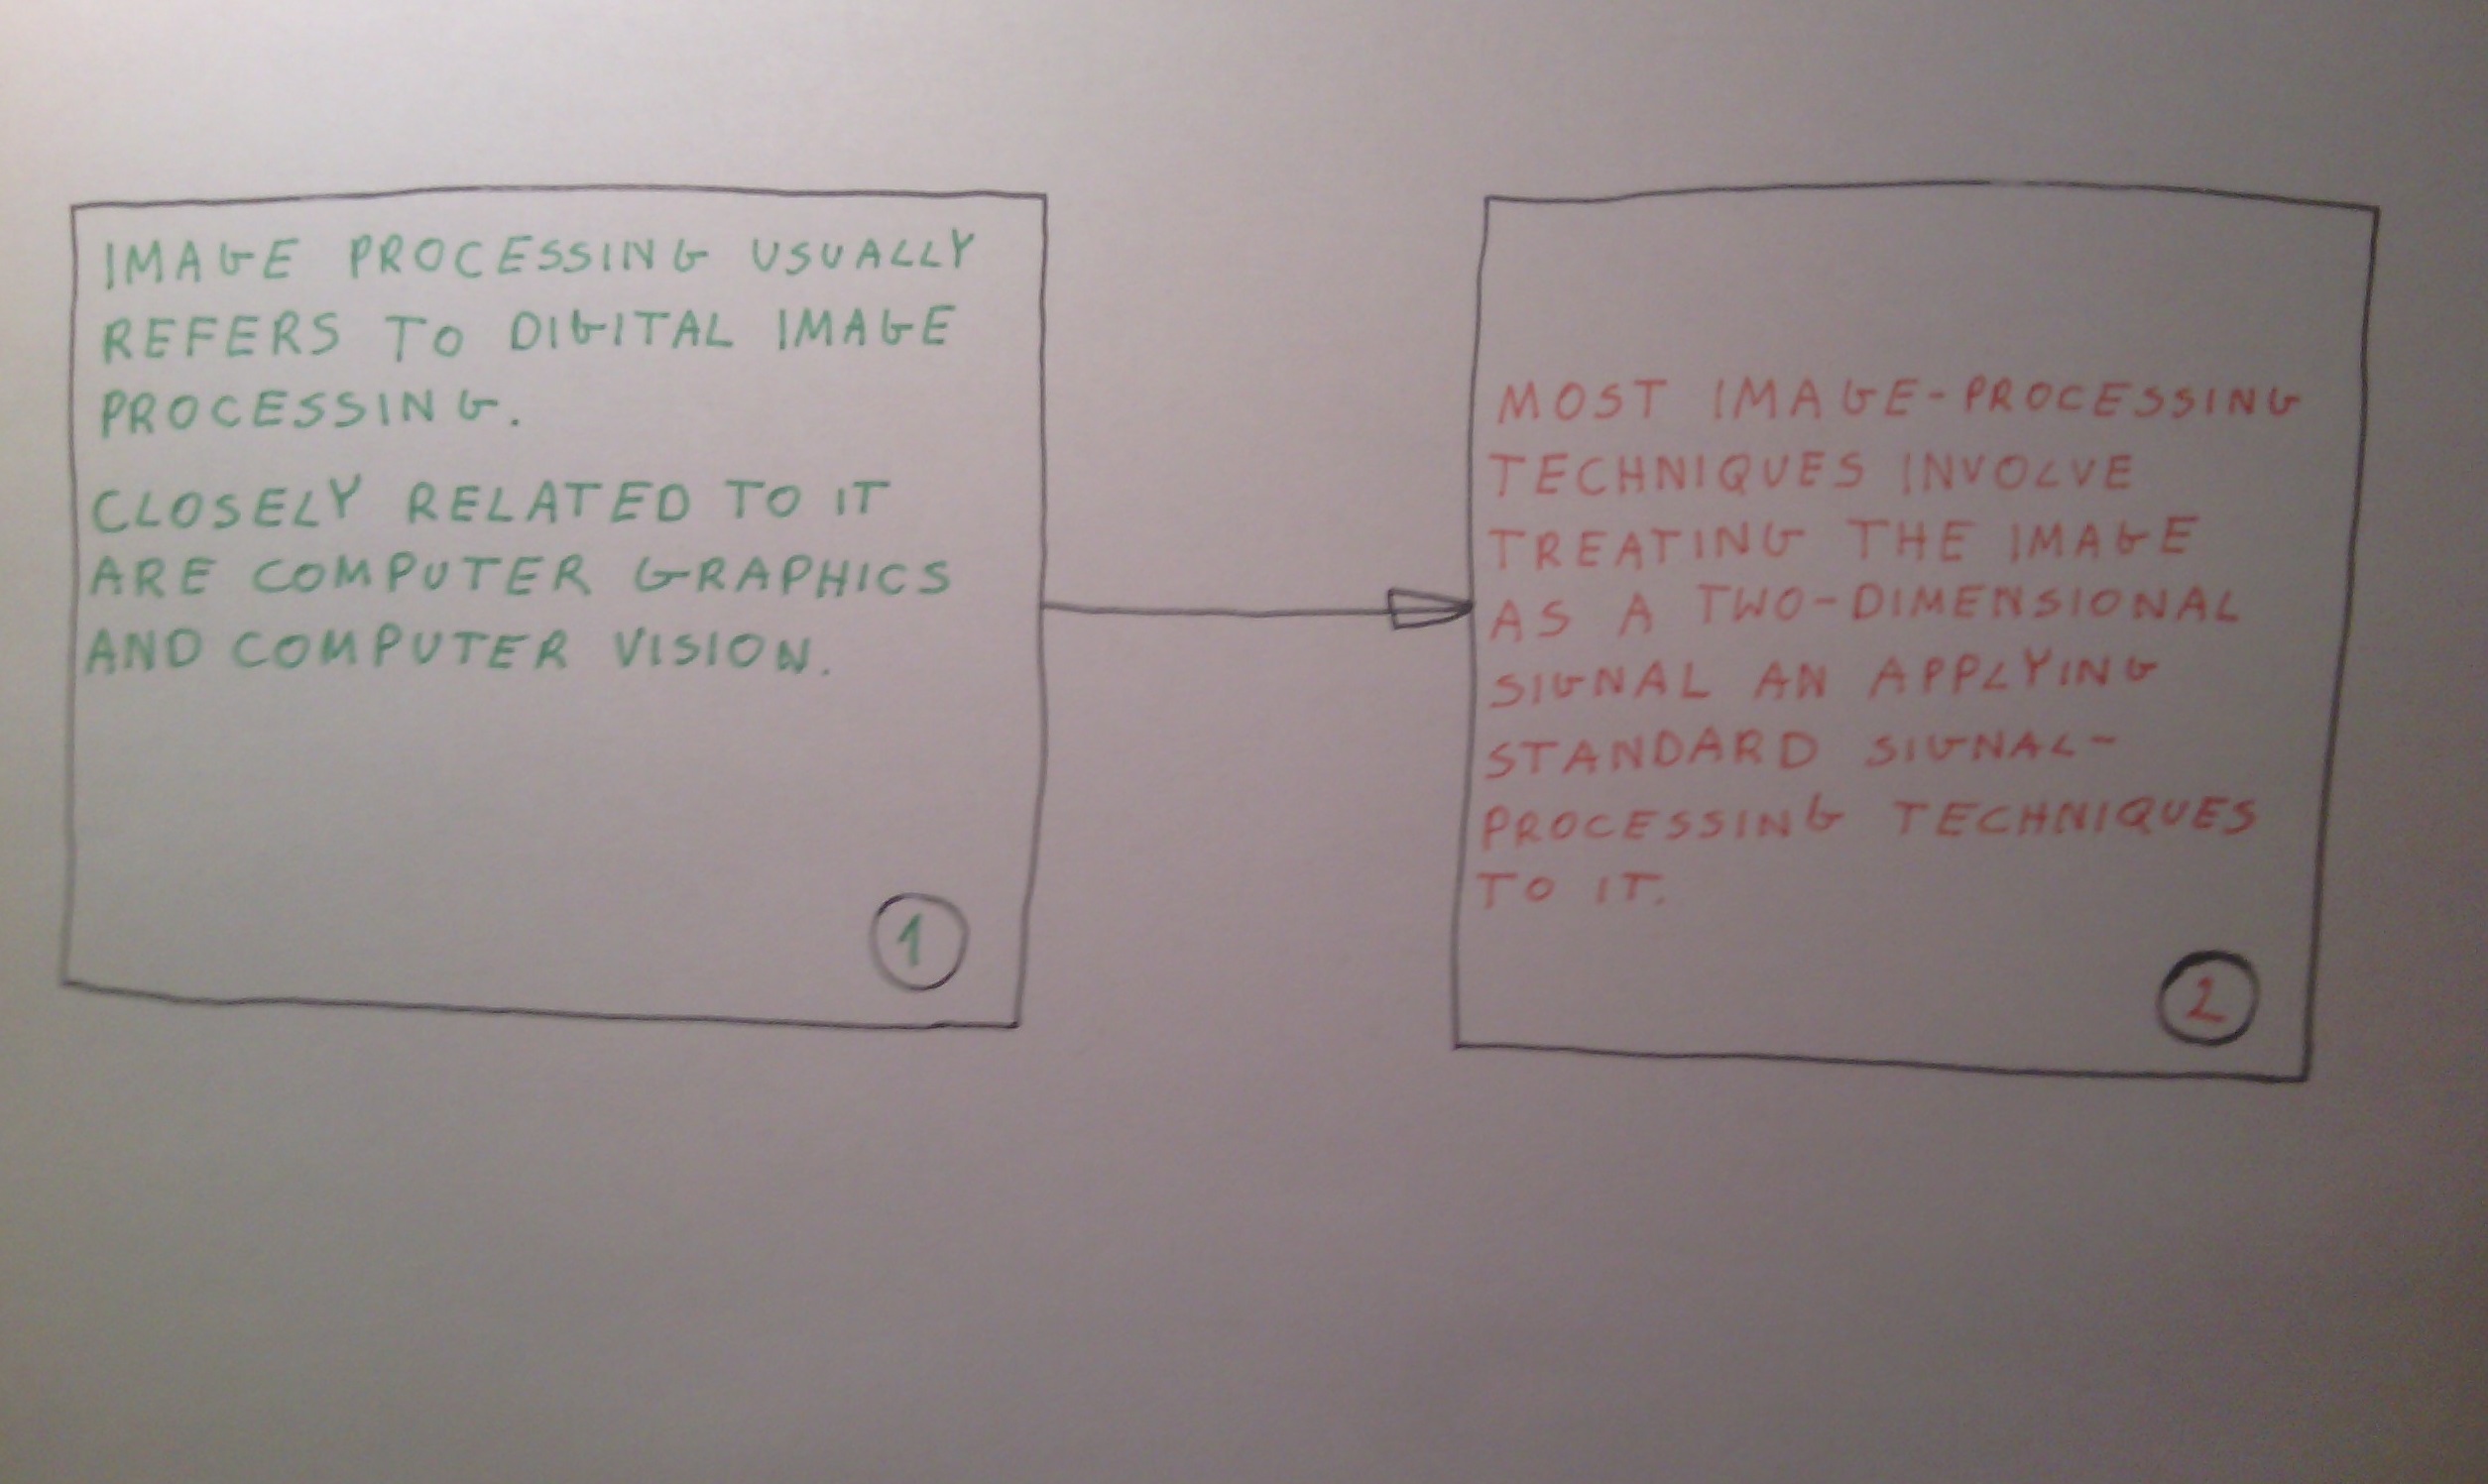 IMAGE PROCESSING USUALLY
REFERS TO DIGITAL IMAGE
PROCESSING.
CLOSELY RELATED TO IT
ARE COMPUTER GRAPHICS
AND COMPUTER VISION.
1
MOST IMAGE-PROCESSING
TECHNIQUES INVOLVE
TREATING THE IMAGE
AS A TWO-DIMENSIONAL
SIGNAL AN APPLYING
STANDARD SIGNAL-
PROCESSING TECHNIQUES
TO IT.
2